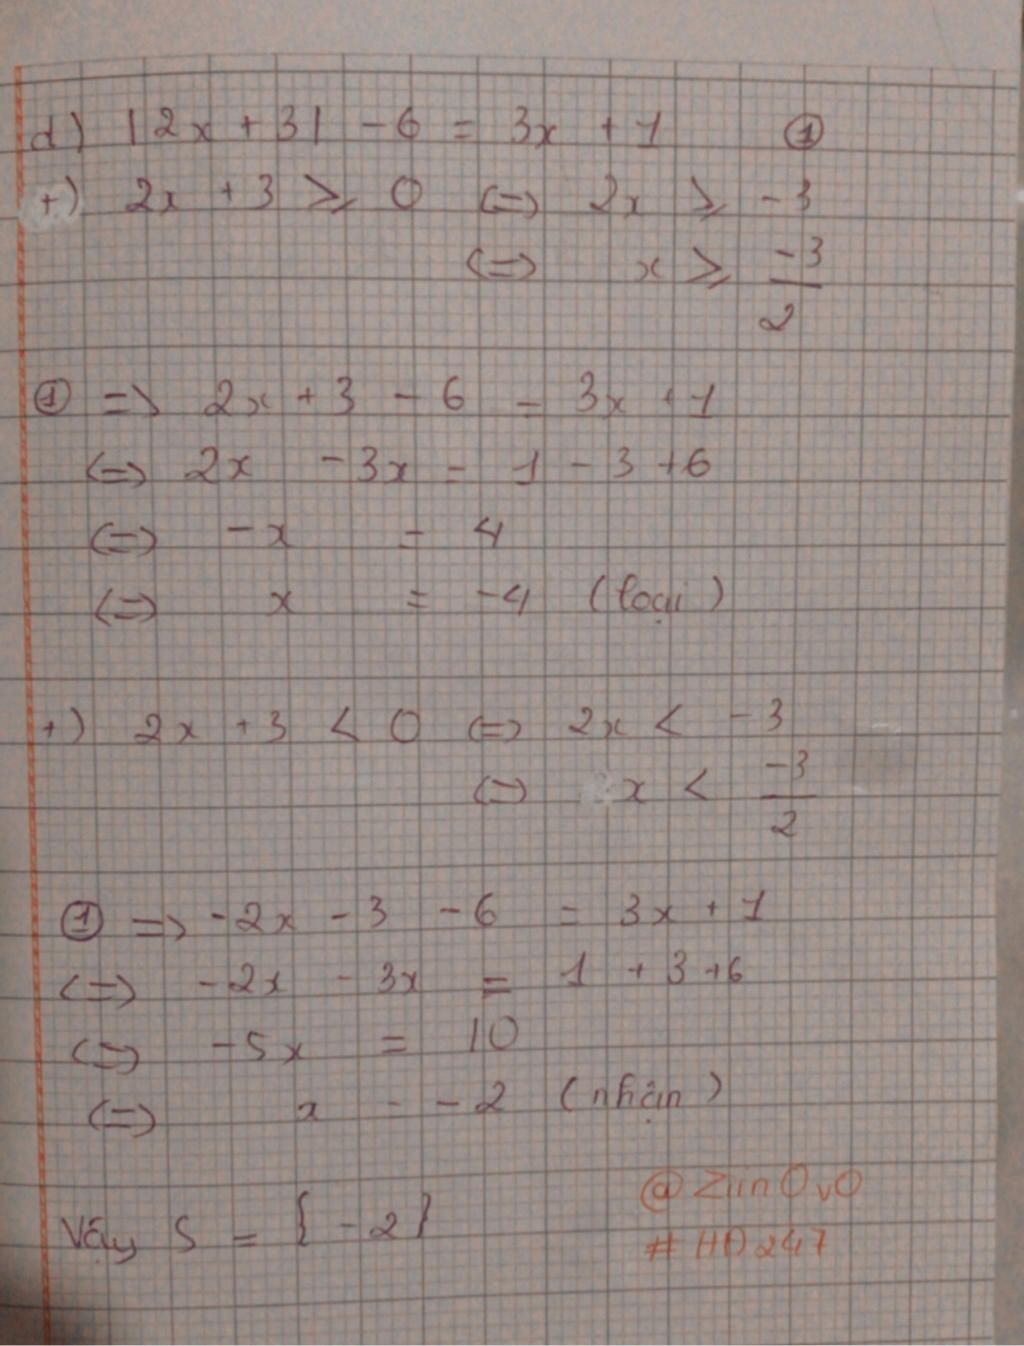 d) |2x + 3| - 6 = 3x + 1 ①
+) 2x + 3 ⩾ 0 (=) 2x ⩾ -3
(=) x ⩾ -3/2
① => 2x + 3 - 6 = 3x + 1
(=) 2x - 3x = 1 - 3 + 6
(=) -x = 4
(=) x = -4 (loại)
+) 2x + 3 < 0 (=) 2x < -3
(=) x < -3/2
① => -2x - 3 - 6 = 3x + 1
(=) -2x - 3x = 1 + 3 + 6
(=) -5x = 10
(=) x = -2 (nhận)
Vậy S = {-2}
@ZiinOvO
#HD247